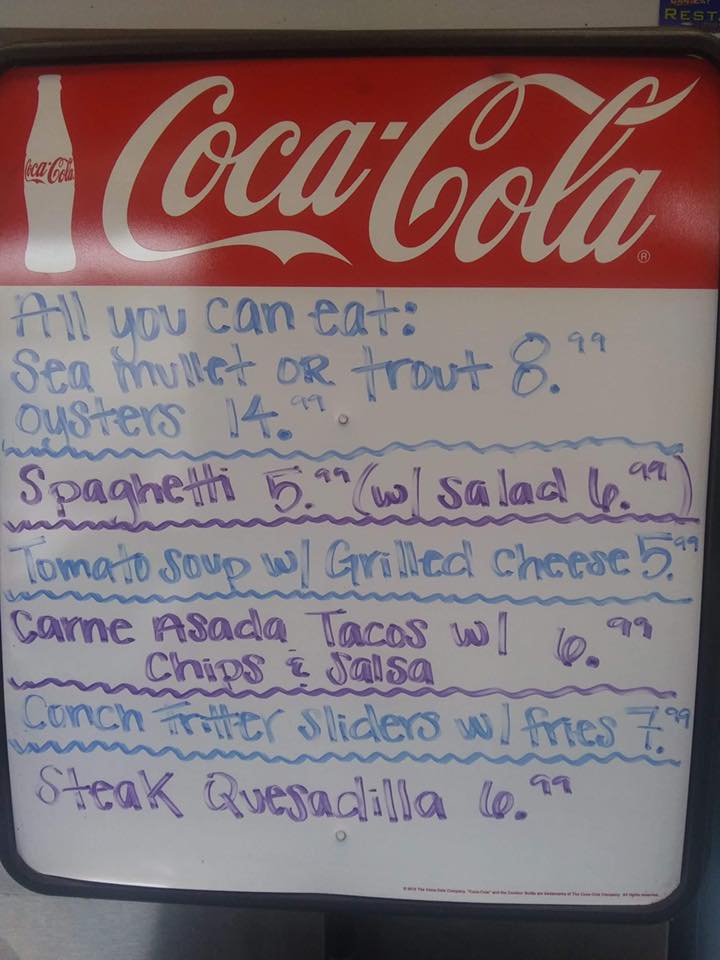 REST
Coca-Cola
Coca-Cola®
All you can eat:
Sea mullet OR trout 8.99
oysters 14.99
Spaghetti 5.99 (w/ salad 6.99)
Tomato soup w/ Grilled cheese 5.99
Carne Asada Tacos w/ 6.99
Chips & Salsa
Conch Fritter sliders w/ fries 7.99
Steak Quesadilla 6.99